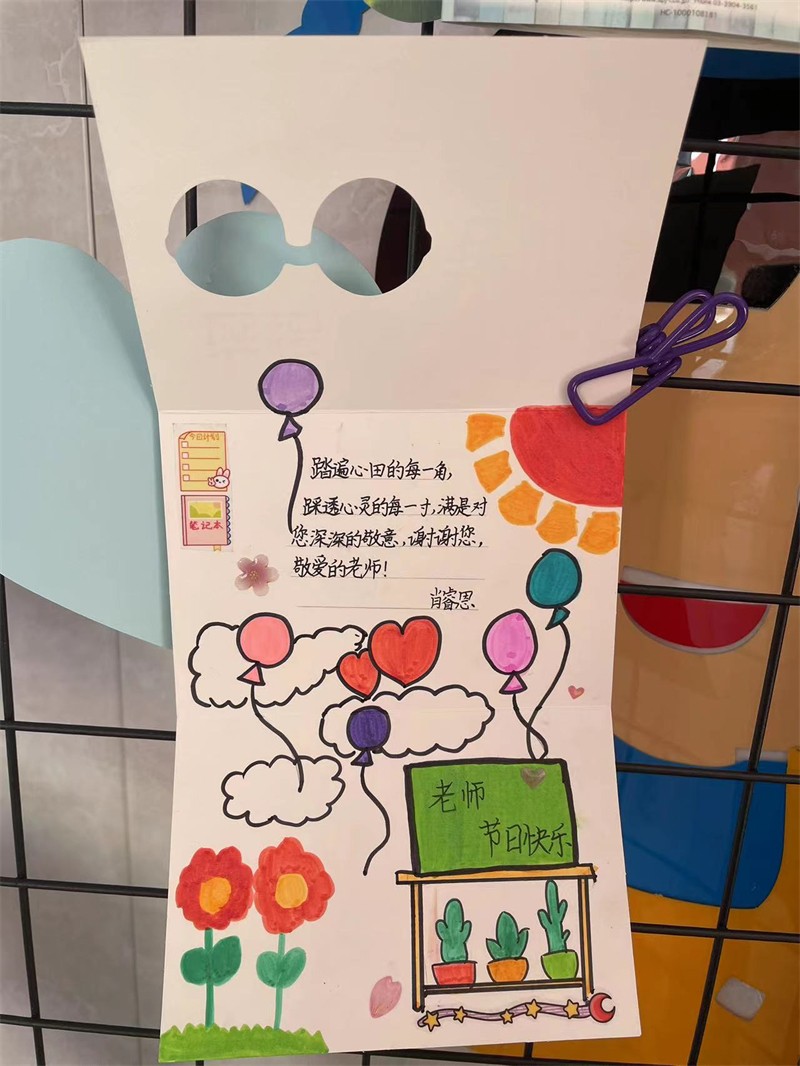 HC-1000108181
今日计划
笔记本
踏遍心田的每一角,
踩透心灵的每一寸,满是对
您深深的敬意,谢谢您,
敬爱的老师!
肖睿思
老师
节日快乐